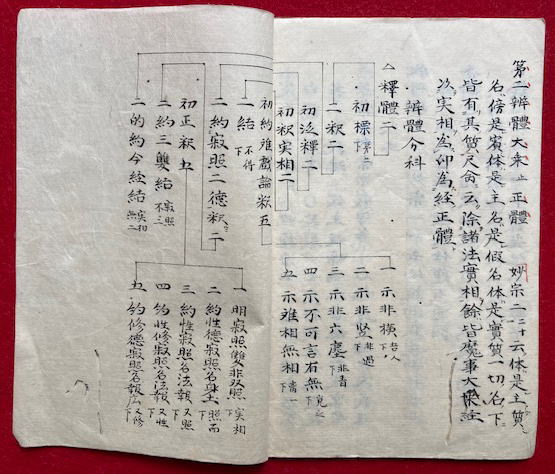 第二辨體大乘 正體 妙宗二二十云体是主質
名傍是賓体是主名是假名体是實質一切名下
皆有其質尺炎云除諸法實相餘皆魔事大乘経
以實相為印為経正體
辨體分科
釋體二
初標 下 第二
二釋二
初泛釋二
初釈実相二
初約離戲論釈五
一 示非橫 下
二 示非竪 下
三 示非六塵 下
四 示不可言有無 下
五 示雖相無相 下
一結 下 不得
二約寂照二德釈二
初正釈五
一 明寂照雙非双照 下 実相
二 約性德寂照名身土 下 照而
三 約性寂照名法報 下 又照
四 約性修寂照名法報 下 又性
五 約修德寂照名報應 下 又修
二約三雙結 寂照 不三
二的約今経結 実相 無二